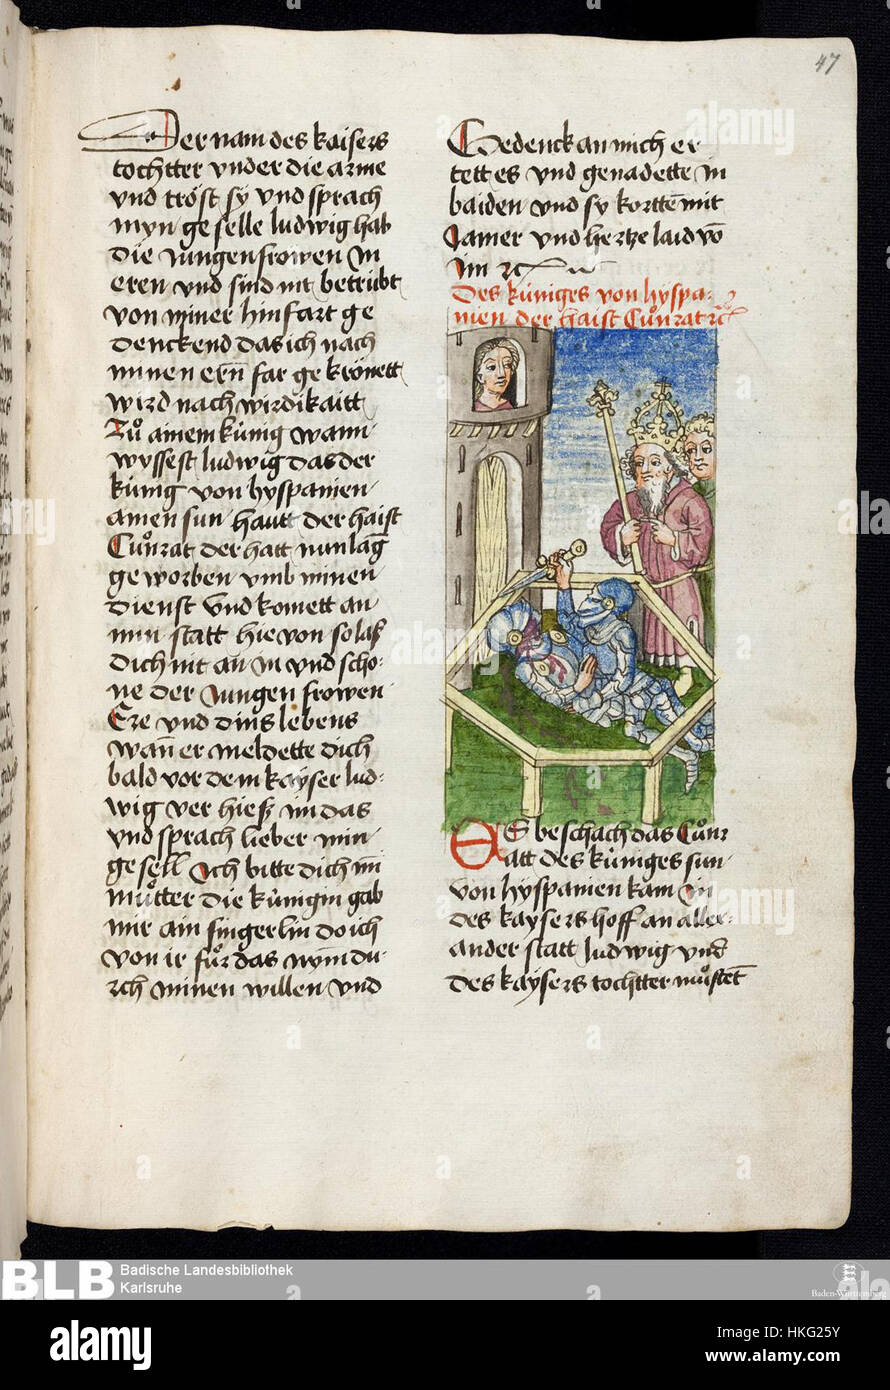 47
Der nam des kaisers
tochtter vnder die arme
vnd tröst sy vnd sprach
myn geselle ludwig hab
die Jungen frowen In
eren vnd sind nit betrübt
von miner hinfart ge
denckend das ich nach
minen ern far gekrönett
wird nach wirdikaitt
Zů ainem künig wann
wyssest ludwig das der
künig von hyspanien
ainen sun hautt der haist
Cůnrat der hatt nun lang
geworben vmb minen
dienst vnd komett an
min statt hie von so laß
dich nit an in vnd scho
ne der Jungen frowen
Ere vnd dins lebens
wann er meldette dich
bald vor dem kayser lud
wig ver hieß im das
vnd sprach lieber min
gesell Ich bitte dich min
můtter die künigin gab
mir ain fingerlin do ich
von ir fůr das nym du
rch minen willen vnd
Gedenck an mich er
tett es vnd genadette in
baiden vnd sy kortten mit
Jamer vnd hertzelaid von
im
Des küniges von hyspa
nien der haist Cůnrat
ES beschach das Cůnr
att des küniges sun
von hyspanien kam In
des kaysers hoff an aller
ander statt ludwig vnd
des kaysers tochtter můsten
BLB
Badische Landesbibliothek
Karlsruhe
Baden-Württemberg
alamy
Image ID: HKG25Y
www.alamy.com